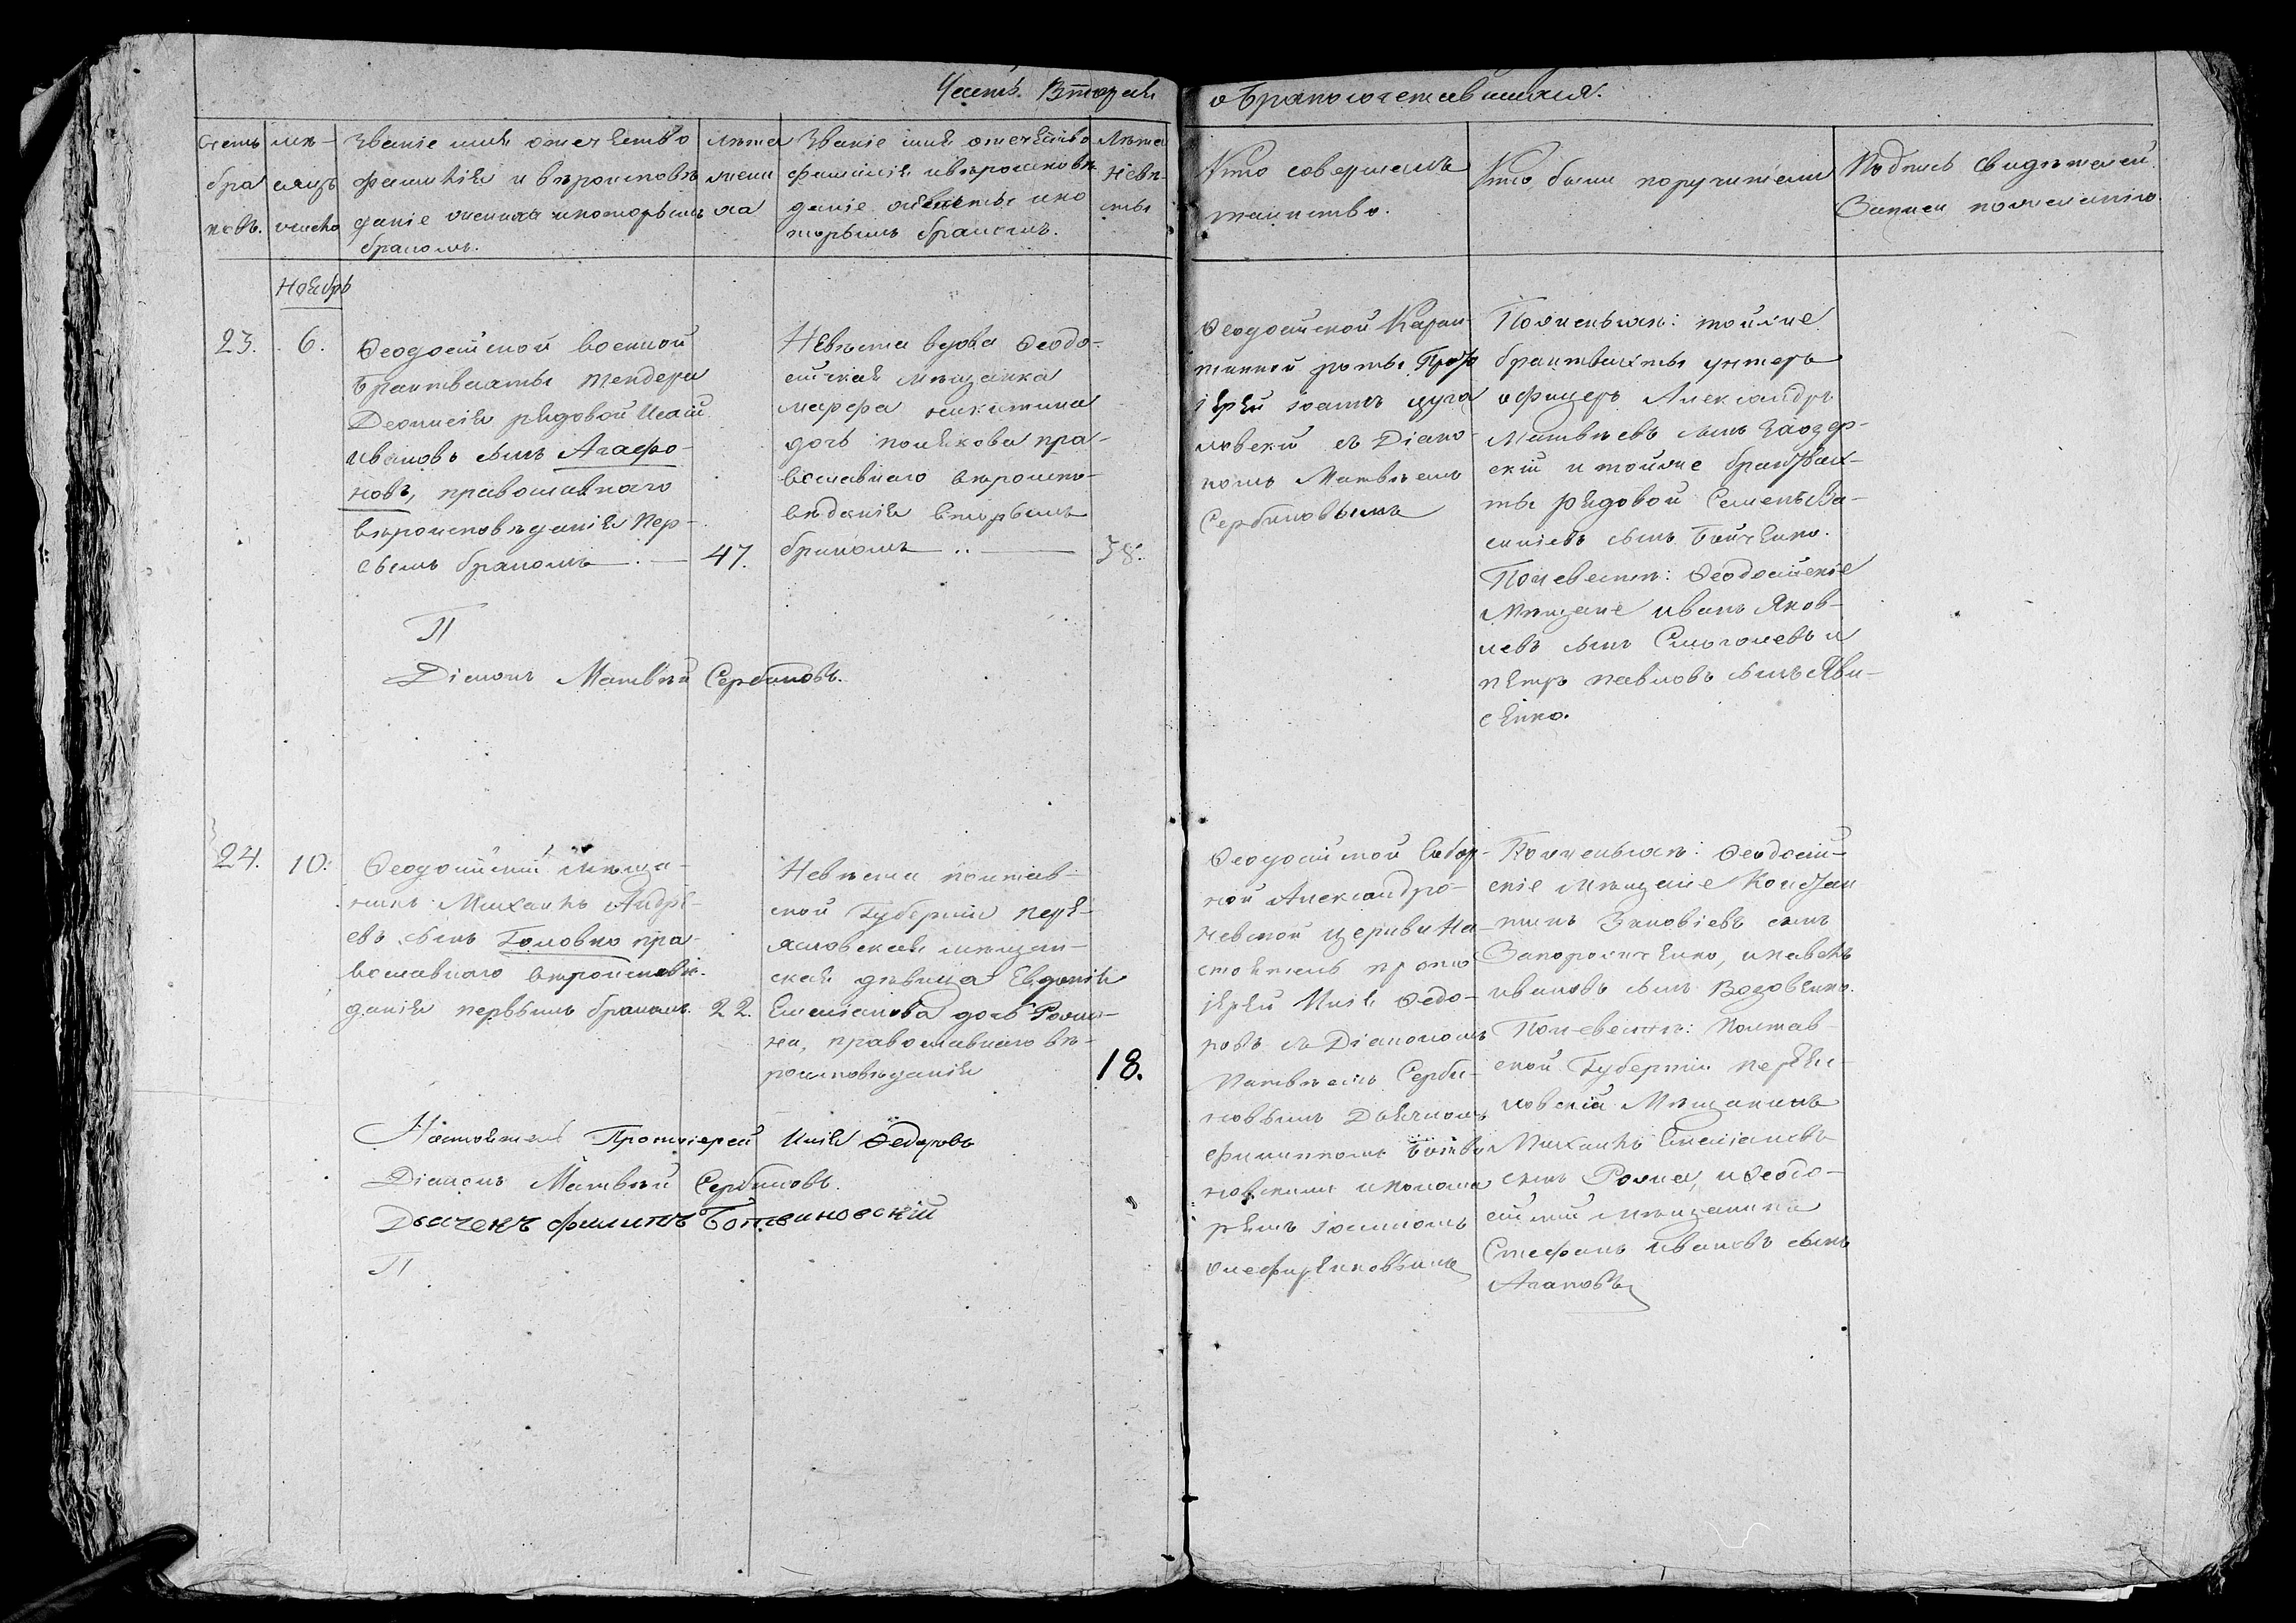 Часть Вторая
о бракосочетавшихся.
Счетъ
бра
ковъ.
мѣ-
сяцъ
число
Званіе имя отечество
фамилія и вѣроисповѣ
даніе жениха и которымъ
бракомъ.
лѣта
жени
ха
Званіе имя отечество
фамилія и вѣроисповѣ
даніе невѣсты и ко
торымъ бракомъ.
Лѣта
невѣ-
сты
Кто совершалъ
таинство.
Кто были поручители
Подпись свидѣтелей
Записи по желанію.
Ноябрь
23.
6.
Ѳеодосійской военной
брантвахты тендера
Діонисія рядовой Исай
Ивановъ сынъ Агафо-
новъ, православнаго
вѣроисповѣданія пер-
вымъ бракомъ
47.
Невѣста вдова Ѳеодо-
сійская мѣщанка
Марфа Никитина
дочь Полякова пра-
вославнаго вѣроиспо-
вѣданія вторымъ
бракомъ
38.
Ѳеодосійской Каран-
тинной роты Прото
іерей Іоаннъ
съ Діако-
номъ Матвѣемъ
Сербиновымъ
По женихѣ: той же
брантвахты унтеръ
офицеръ Александръ
Матвѣевъ сынъ
и той же брантвах-
ты рядовой Семенъ Ва-
силіевъ сынъ Бойченко.
По невестѣ: Ѳеодосійскіе
Мѣщане Иванъ Яков-
левъ сынъ и
Петръ Павловъ сынъ Яви-
сенко.
П
Діаконъ Матвѣй Сербиновъ.
24.
10.
Ѳеодосійскій мѣща-
нинъ Михаилъ Андре-
евъ сынъ Головко пра-
вославнаго вѣроисповѣ-
данія первымъ бракомъ.
22.
Невѣста Полтав-
ской Губерніи Пере-
яславская мѣщан-
ская дѣвица Евдокія
Емеліанова дочь Рожки-
на, православнаго вѣ-
роисповѣданія
18.
Ѳеодосійской Собор-
ной Александро-
невской церкви На-
стоятель прото
іерей Илія Ѳедо-
ровъ съ Діакономъ
Матвѣемъ Серби-
новымъ Дьячкомъ
Филиппомъ Ботви
новскимъ и понома
ремъ
По женихѣ: Ѳеодосій-
скіе мѣщане Констан
тинъ Зиновіевъ сынъ
Запорожченко, и Павелъ
Ивановъ сынъ Вдовенко.
По невестѣ: Полтав-
ской Губерніи Переяс-
ловскій Мѣщанинъ
Михаилъ Емеліановъ
сынъ Рожка, и Ѳеодо-
сійскій мѣщанинъ
Стефанъ Ивановъ сынъ
Агаповъ
Настоятель Протоіерей Илія Ѳедоровъ
Діаконъ Матвѣй Сербиновъ.
Дьячекъ Филиппъ Ботвиновскій
П